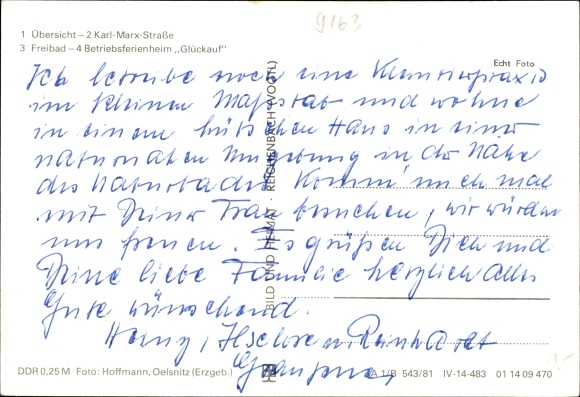 9163
1 Übersicht – 2 Karl-Marx-Straße
3 Freibad – 4 Betriebsferienheim „Glückauf"
Echt Foto
Ich betreibe noch eine
im kleinen Maßstab und wohne
in einem hübschen Haus in einer
naturnahen Umgebung in der Nähe
des Naturbades. Komm' mich mal
mit Deiner Frau besuchen, wir würden
uns freuen. Es grüßen Dich und
Deine liebe Familie herzlich alles
Gute wünschend.
Heinz, Ilselore u. Reinhardt
BILD UND HEIMAT · REICHENBACH (VOGTL)
DDR 0,25 M Foto: Hoffmann, Oelsnitz (Erzgeb.)
A 1/B 543/81 IV-14-483 01 14 09 470